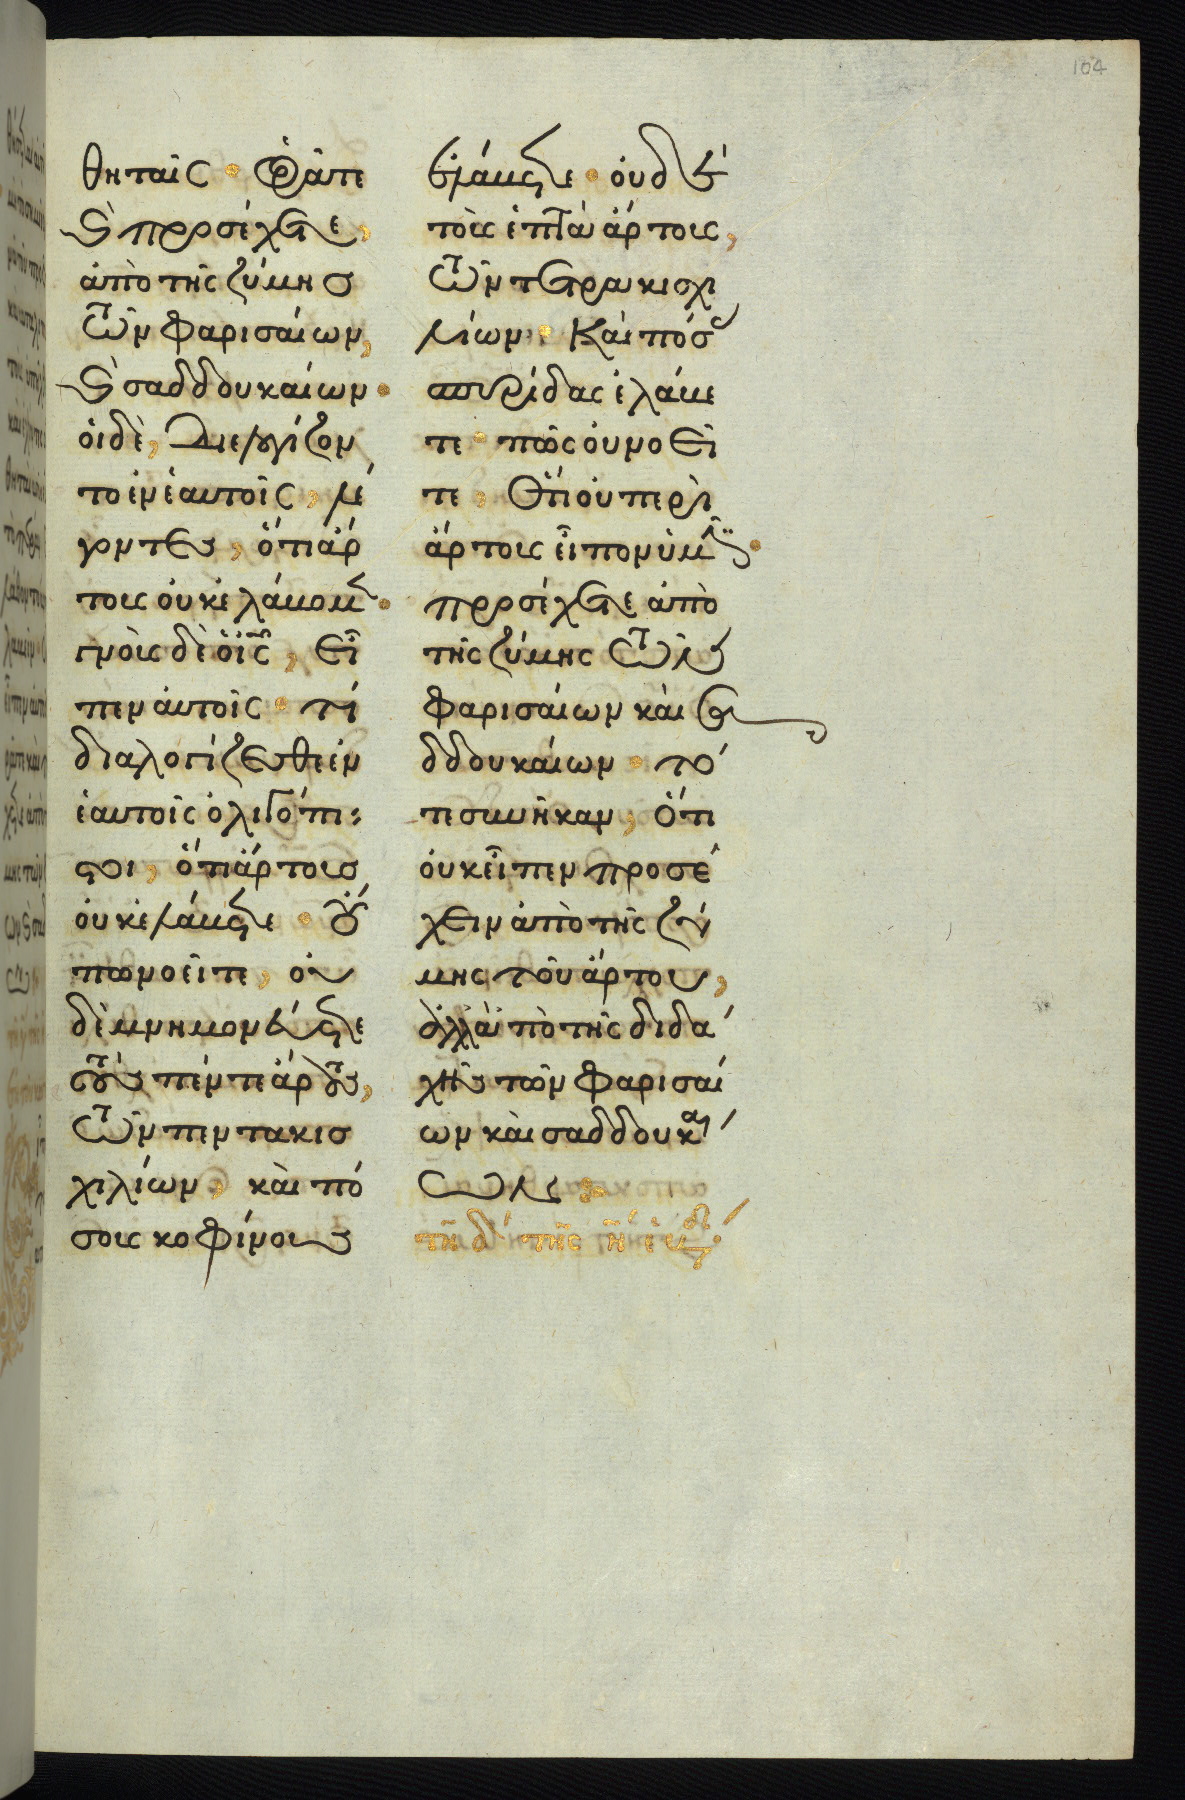 104
θηταῖς · ὁρᾶτε
καὶ προσέχετε,
ἀπὸ τῆς ζύμης
τῶν φαρισαίων,
καὶ σαδδουκαίων ·
οἱ δὲ, διελογίζον
το ἐν ἑαυτοῖς, λέ
γοντες, ὅτι ἄρ
τους οὐκ ἐλάβομεν ·
γνοὺς δὲ ὁ ἰς, εἶ
πεν αὐτοῖς · τί
διαλογίζεσθε ἐν
ἑαυτοῖς ὀλιγόπι
στοι, ὅτι ἄρτους
οὐκ ἐλάβετε · οὔ
πω νοεῖτε, οὐ
δὲ μνημονεύετε
τοὺς πέντε ἄρτους,
τῶν πεντακισ
χιλίων, καὶ πό
σους κοφίνους
ἐλάβετε · οὐδὲ
τοὺς ἑπτὰ ἄρτους,
τῶν τετρακισχι
λίων · Καὶ πόσας
σπυρίδας ἐλάβε
τε · πῶς οὐ νοεῖ
τε, Ὅτι οὐ περὶ
ἄρτου εἶπον ὑμῖν ·
προσέχετε ἀπὸ
τῆς ζύμης τῶν
φαρισαίων καὶ σα
δδουκαίων · τό
τε συνῆκαν, Ὅτι
οὐκ εἶπεν προσέ
χειν ἀπὸ τῆς ζύ
μης τοῦ ἄρτου,
ἀλλὰ ἀπὸ τῆς διδα
χῆς τῶν φαρισαί
ων καὶ σαδδουκαί
ων :
τῆ δ τῆς η ἑβδ